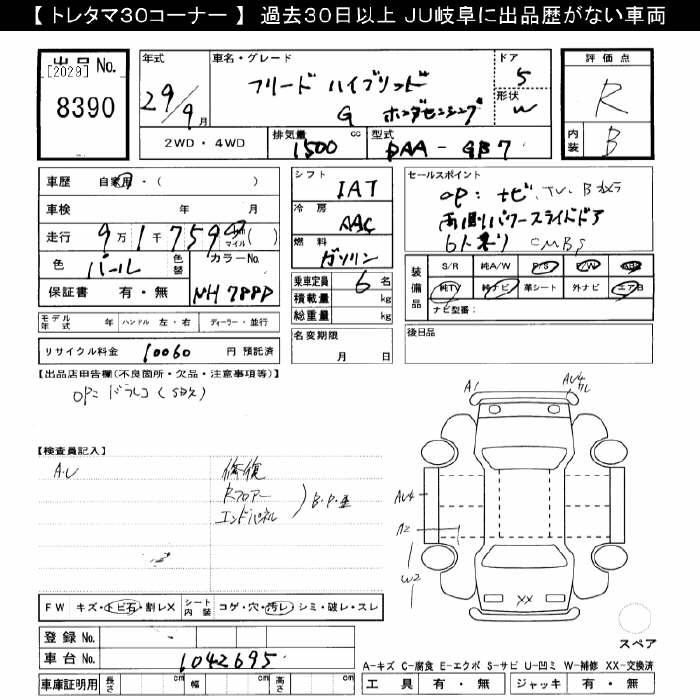 【 トレタマ30コーナー 】 過去30日以上 JU岐阜に出品歴がない車両
出品 No.
[2029]
8390
年式
29/9月
車名・グレード
フリード ハイブリッド
G ホンダセンシング
ドア
5
形状
W
評価点
R
内装
B
2WD・4WD
排気量
1500 cc
型式
DAA-GB7
車歴 自家用・( )
車検 年 月
走行 9万1千759 km マイル ( )
色
パール
色替
カラーNo.
NH788P
保証書 有・無
モデル年式 年 ハンドル 左・右 ディーラー・並行
リサイクル料金 10060 円 預託済
シフト
IAT
冷房
AAC
燃料
ガソリン
乗車定員 6 名
積載量 kg
総重量 kg
名変期限
月 日
セールスポイント
OP: ナビ, TV, Bカメラ
両側パワースライドドア
6人乗り CMBS
装備品
S/R 純A/W P/S P/W ABS
純TV 純ナビ 革シート 外ナビ エアB
ナビ型番:
後日品
【出品店申告欄(不良箇所・欠品・注意事項等)】
OP= ドラレコ (SD欠)
【検査員記入】
A.U 修復
Rフロアー
エンドパネル
A1
AU4
AU4
A2
W2
XX
FW キズ・トビ石・割レX シート内装 コゲ・穴・汚レ・シミ・破レ・スレ
スペア
登録 No. -
車台 No. 1042695
A-キズ C-腐食 E-エクボ S-サビ U-凹ミ W-補修 XX-交換済
車庫証明用 長さ cm 幅 cm 高さ cm
工具 有・無 ジャッキ 有・無